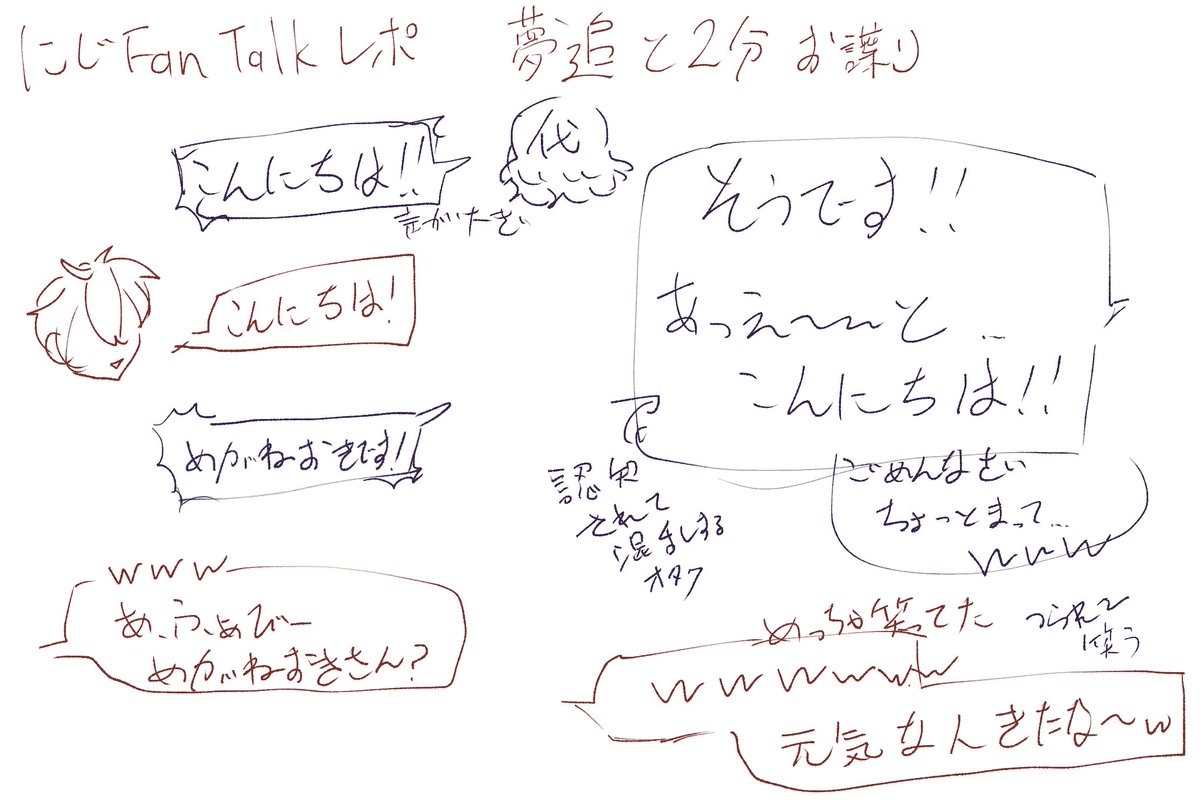 にじFan Talkレポ 夢追と2分お喋り
こんにちは!!
代
声が大きい
こんにちは!
めがねおきです!!
www
あ、ふぁびー
めがねおきさん?
そうです!!
あっえ〜〜と…
こんにちは!!
認知
されて
混乱する
オタク
ごめんなさい
ちょっとまって…
www
めっちゃ笑ってた
つられて
笑う
wwwwww
元気な人きたな〜w